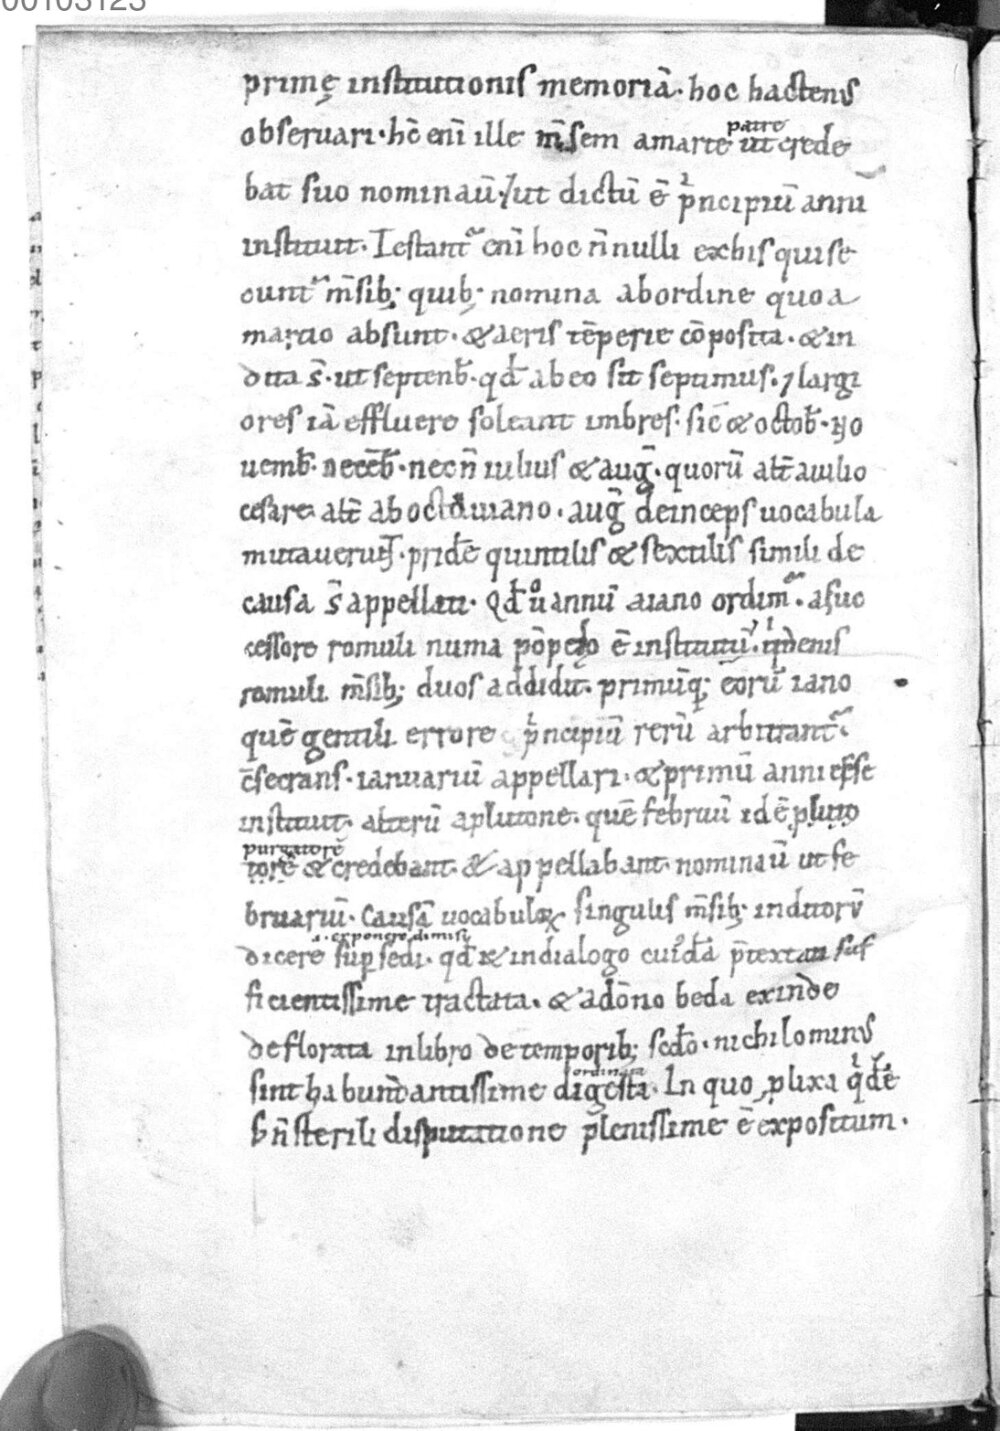 00103123
primę institutionis memoriā. hoc hactenus
obseruari. hc̄ eni̅ ille m̅sem a marte ut crede
patre
bat suo nominauit̅. ut dictū ē principiū anni
instituit. Testant᷑ eni̅ hoc n̅nulli ex his qui se
cunt᷑ m̅sib; quib; nomina ab ordine quo a
martio absunt. & aeris tēperie cōposita. & in
dita s̅. ut septenb̅. qđ ab eo sit septimus. ⁊ largi
ores iā effluere soleant imbres. sic & octob̅. No
uemb̅. decēb̅. necn̅ iulius & aug̅. quorū alt̅ a iulio
cesare alt̅ ab octauiano. aug̅ deinceps uocabula
mutauerunt. pridē quintilis & sextilis simili de
causa s̅ appellati. Qđ uͦ annū a iano ordin᷑. a suc
cessore romuli numa pōpilio ē institutū. qͥ denis
romuli m̅sib; duos addidit. primūq; eorū iano
quē gentili errore pͥncipiū rerū arbitrant᷑
c̅secrans. ianuariū appellari. & primū anni ēsse
instituit. alterū a plutone. quē februū idē pluto
purgatorē
torē & credebant. & appellabant. nominauit̅ ut fe
bruariū. Causā uocabuloꝝ singulis m̅sib; inditorū
.i. exponere dimisi
dicere sup̱sedi. qđ & in dialogo cuiͥdā p̅textati suf
ficientissime tractata. & a dōno beda exinde
deflorata in libro de temporib; sc̅do. nichilominus
ordinata
sint habundantissime digesta. In quo ꝓlixa qͥdē
s̅ n̅ sterili disputatione plenissime ē expositum.